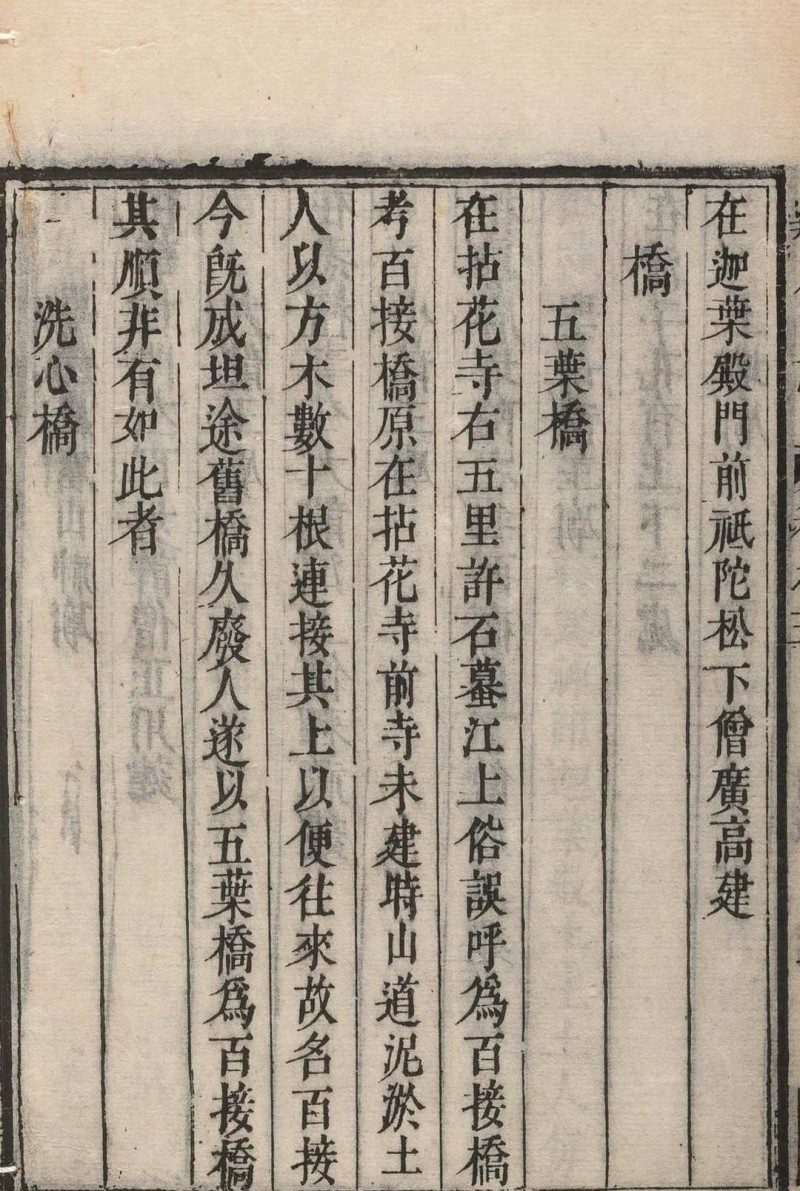 在迦葉殿門前祇陀松下僧廣高建
橋
五葉橋
在拈花寺右五里許石蟇江上俗誤呼爲百接橋
考百接橋原在拈花寺前寺未建時山道泥淤土
人以方木數十根連接其上以便往來故名百接
今旣成坦途舊橋久廢人遂以五葉橋爲百接橋
其順非有如此者
洗心橋